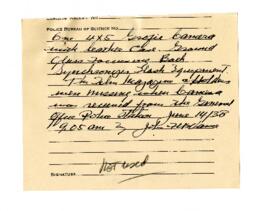 POLICE BUREAU OF SCIENCE NO.
One 4x5 Grafic Camera
with Leather Case. Ground
Glass Focusing Back
Synchronizer Flash Equipment
Film Magazine
were missing when Camera
was received from the General
Office Police Station June 14/38
9.05 am John
Not used
SIGNATURE